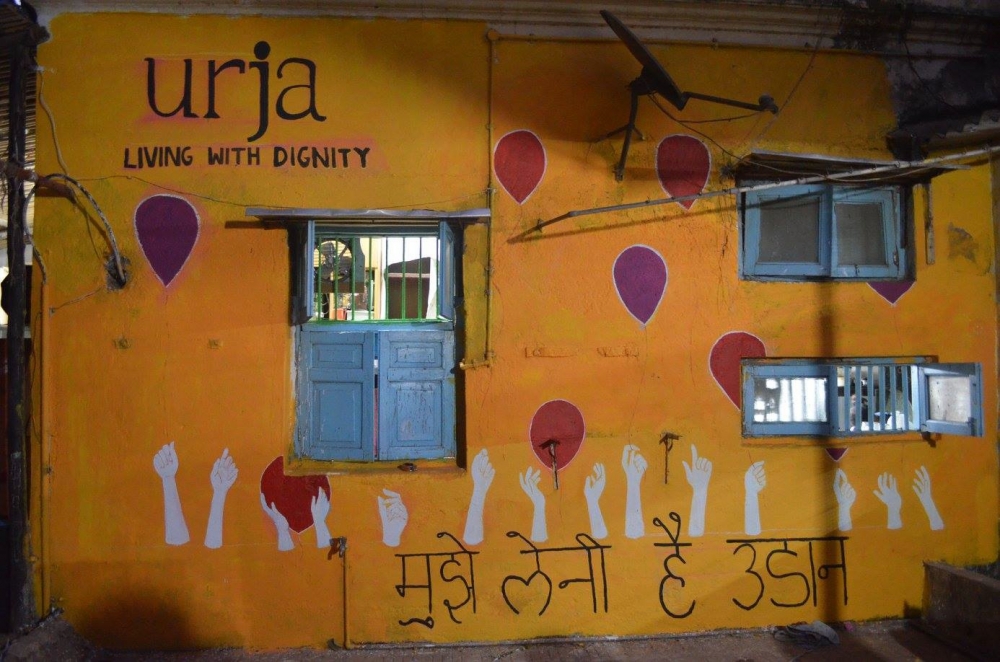 urja
LIVING WITH DIGNITY
मुझे लेनी है उडान